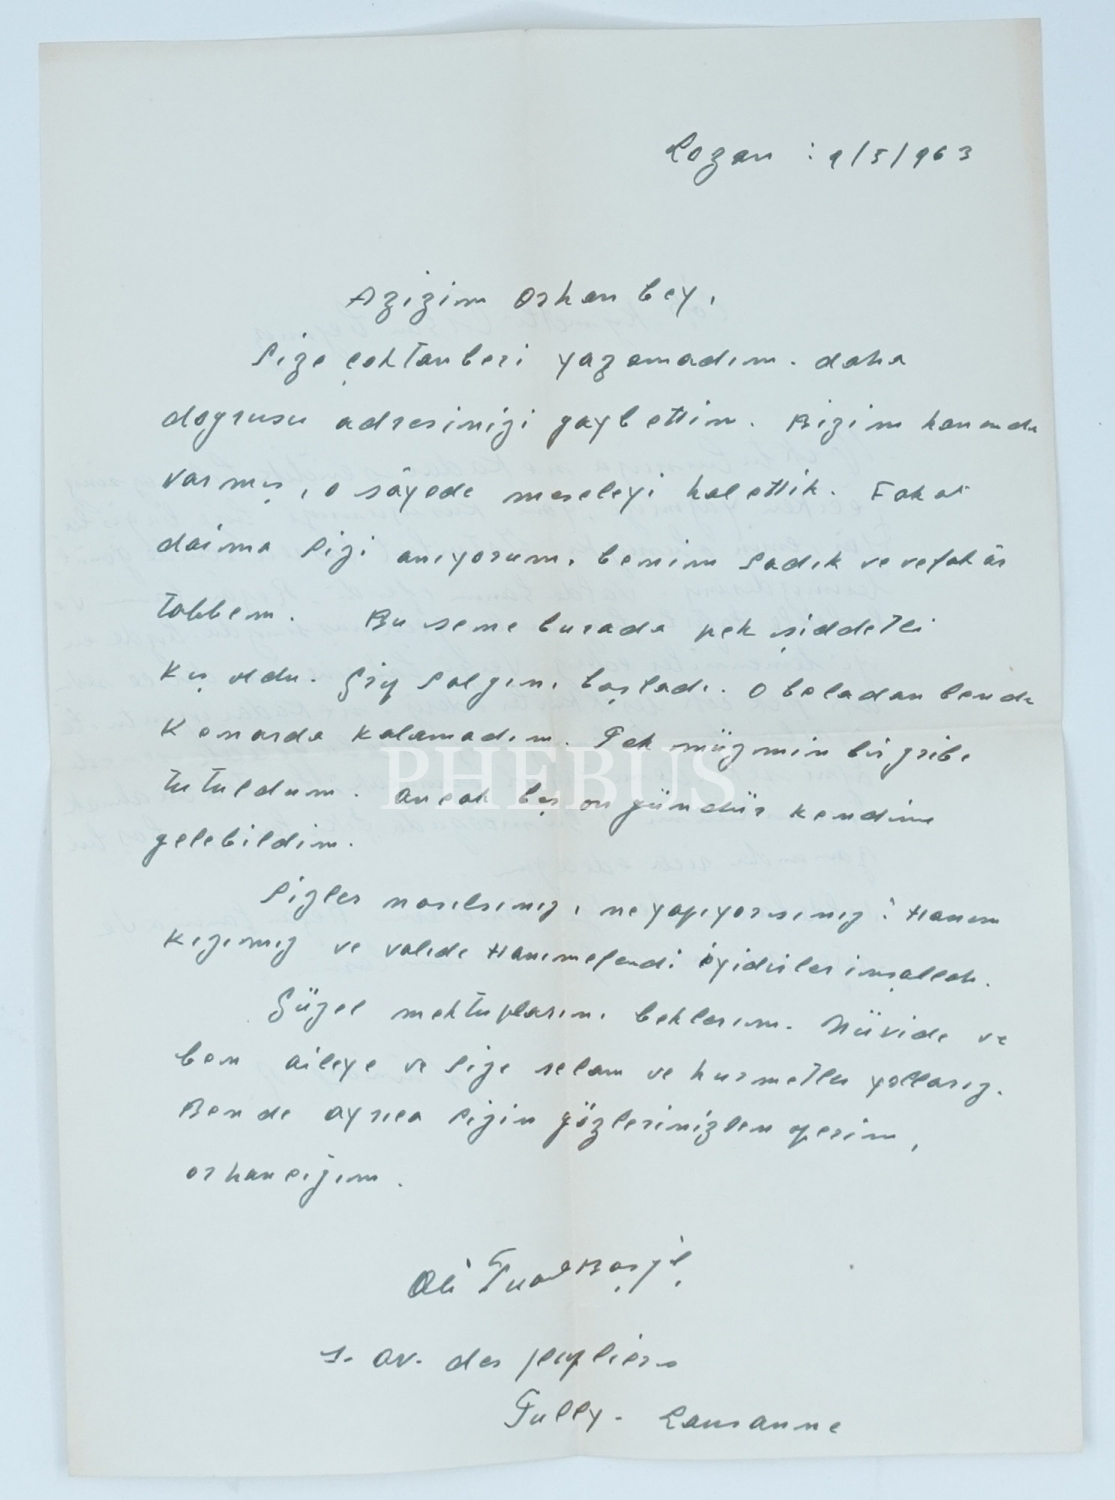 Lozan : 9/5/963
Azizim Orhan bey,
Size çoktanberi yazamadım. daha
doğrusu adresinizi gaybettim. Bizim hanımda
varmış, o sâyede meseleyi halettik. Fakat
daima sizi anıyorum, benim sadık ve vefakâr
talebem. Bu sene burada pek şiddetli
kış oldu. Grip salgını başladı. O beladan bende
kenarda kalamadım. Pek müzmin bir gribe
tutuldum. Ancak beş on gündür kendime
gelebildim.
Sizler nasılsınız, ne yapıyorsunuz? Hanım
kızımız ve valide Hanımefendi iyidirler inşallah.
Güzel mektuplarını beklerim. Nüvide ve
ben aileye ve size selam ve hurmetler yollarız.
Ben de ayrıca sizin gözlerinizden öperim,
orhancığım.
Ali Fuad Başgil
1. av. des peupliers
Pully - Lausanne
PHEBUS